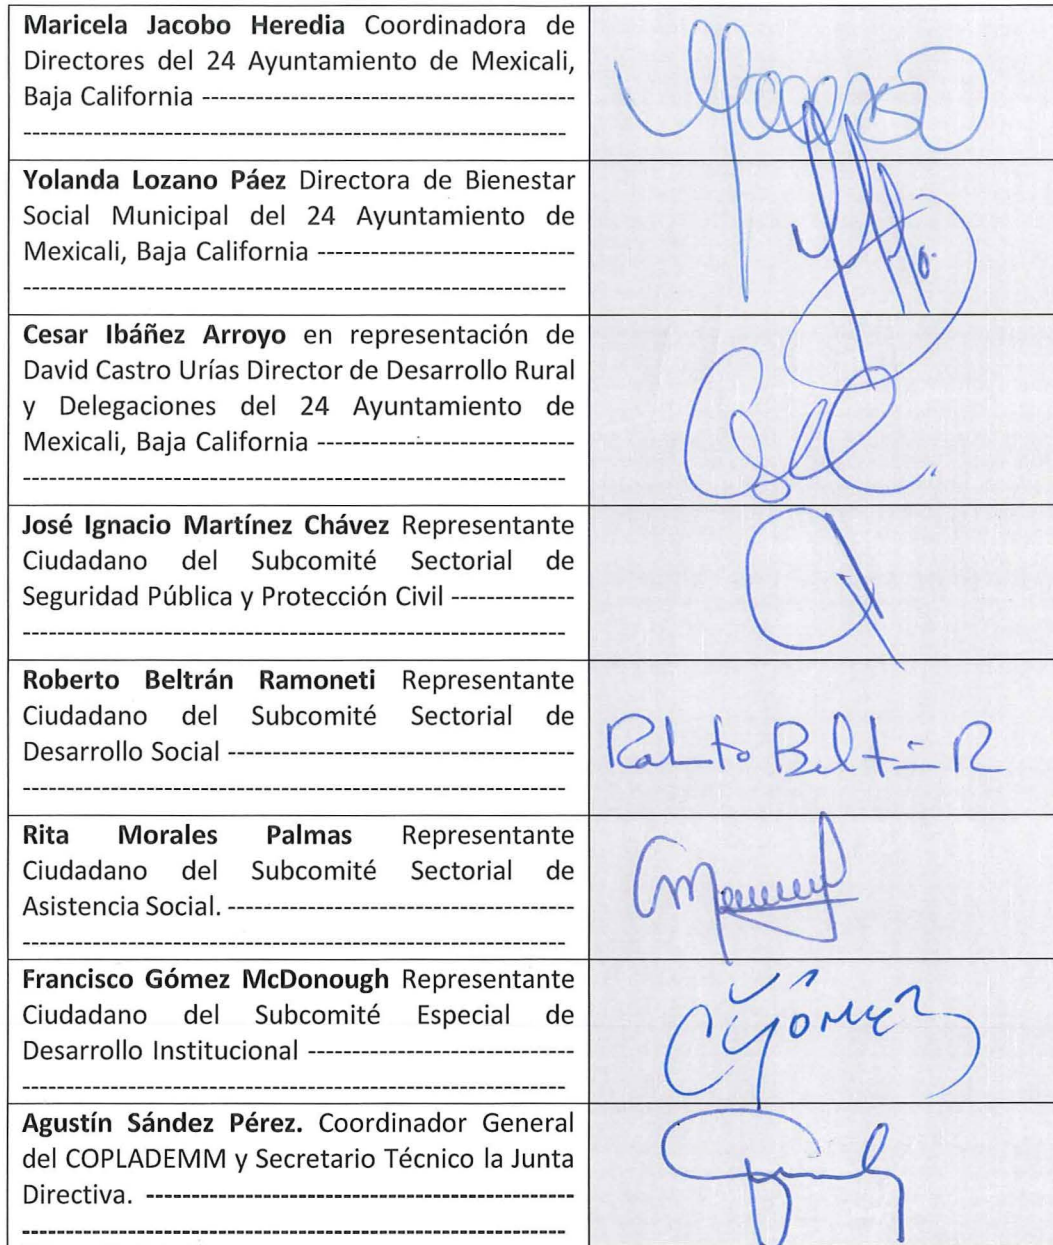 Maricela Jacobo Heredia Coordinadora de
Directores del 24 Ayuntamiento de Mexicali,
Baja California ------------------------------------------
-------------------------------------------------------------
Yolanda Lozano Páez Directora de Bienestar
Social Municipal del 24 Ayuntamiento de
Mexicali, Baja California -----------------------------
-------------------------------------------------------------
Cesar Ibáñez Arroyo en representación de
David Castro Urías Director de Desarrollo Rural
y Delegaciones del 24 Ayuntamiento de
Mexicali, Baja California -----------------------------
-------------------------------------------------------------
José Ignacio Martínez Chávez Representante
Ciudadano del Subcomité Sectorial de
Seguridad Pública y Protección Civil --------------
-------------------------------------------------------------
Roberto Beltrán Ramoneti Representante
Ciudadano del Subcomité Sectorial de
Desarrollo Social ---------------------------------------
-------------------------------------------------------------
Roberto Beltrán R
Rita Morales Palmas Representante
Ciudadano del Subcomité Sectorial de
Asistencia Social. ---------------------------------------
-------------------------------------------------------------
Francisco Gómez McDonough Representante
Ciudadano del Subcomité Especial de
Desarrollo Institucional ------------------------------
-------------------------------------------------------------
Gómez
Agustín Sández Pérez. Coordinador General
del COPLADEMM y Secretario Técnico la Junta
Directiva. ------------------------------------------------
-------------------------------------------------------------